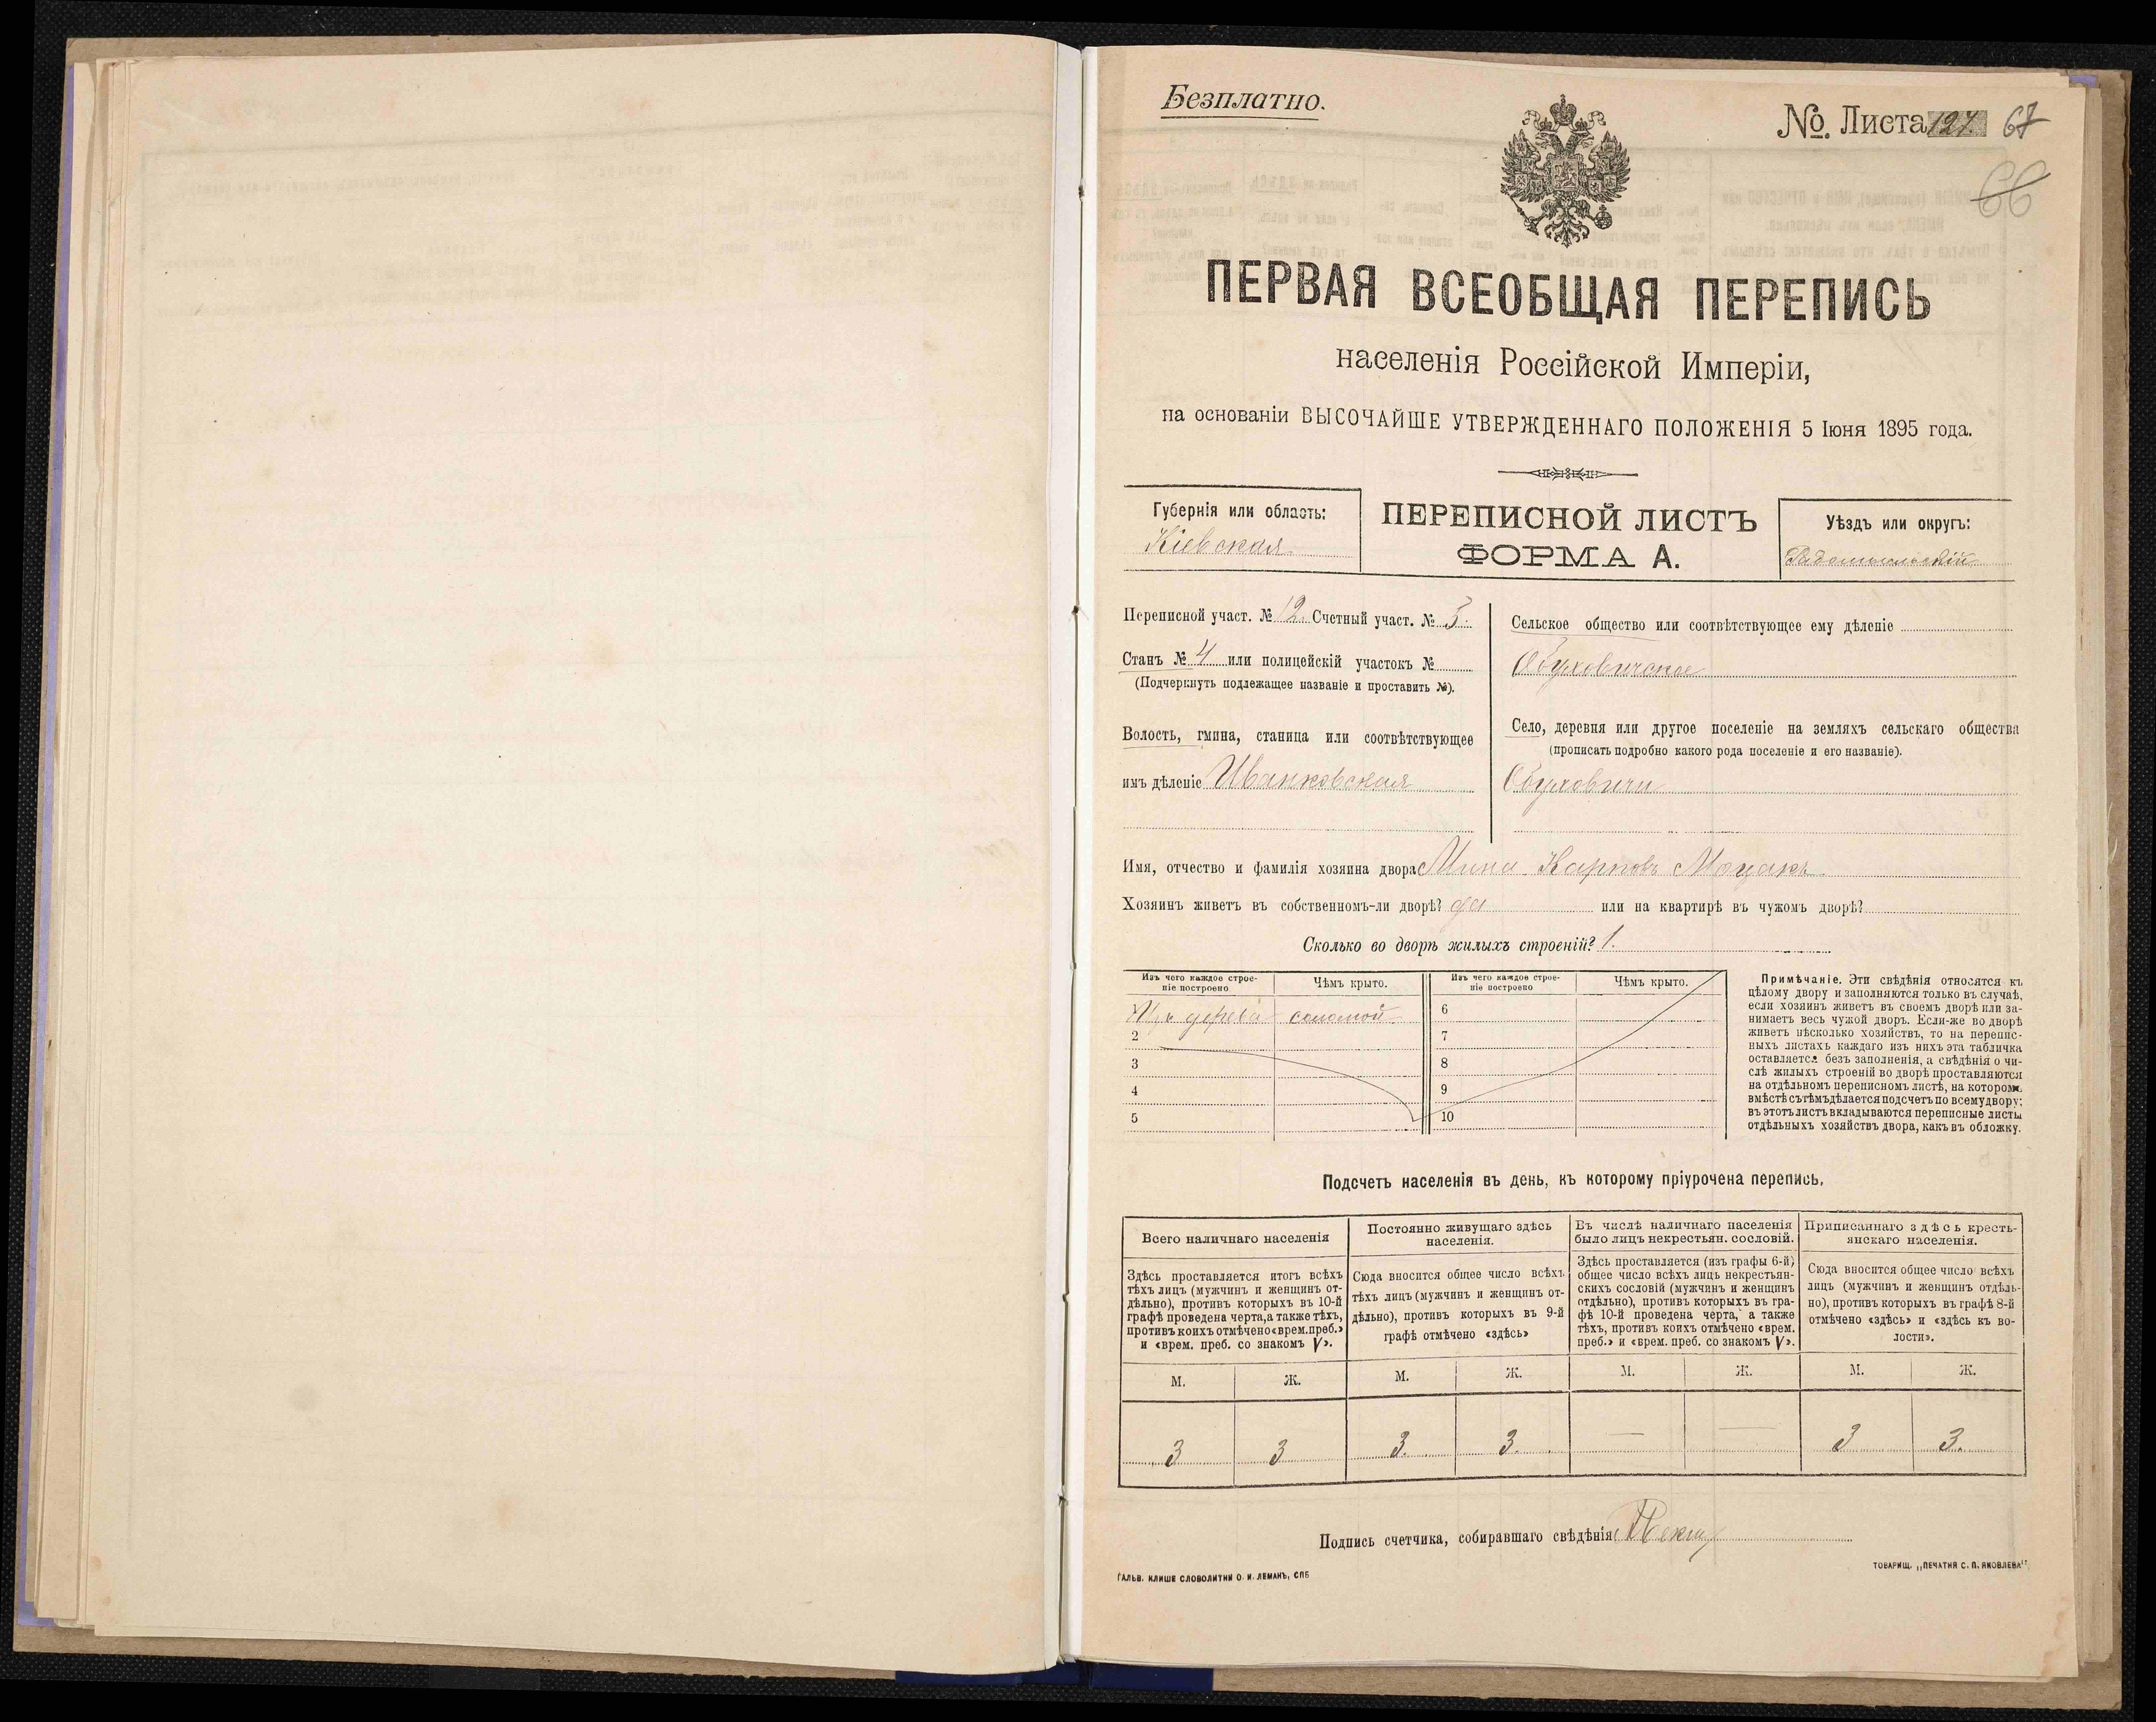 Безплатно.
№ Листа 127. 67
66
ПЕРВАЯ ВСЕОБЩАЯ ПЕРЕПИСЬ
населенія Россійской Имперіи,
на основаніи ВЫСОЧАЙШЕ УТВЕРЖДЕННАГО ПОЛОЖЕНІЯ 5 Іюня 1895 года.
Губернія или область:
Кіевская
ПЕРЕПИСНОЙ ЛИСТЪ
ФОРМА А.
Уѣздъ или округъ:
Радомысльскій
Переписной участ. № 12. Счетный участ. № 5.
Станъ № 4 или полицейскій участокъ №
(Подчеркнуть подлежащее названіе и проставить №).
Волость, гмина, станица или соотвѣтствующее
имъ дѣленіе Иванковская
Сельское общество или соотвѣтствующее ему дѣленіе
Обуховичское
Село, деревня или другое поселеніе на земляхъ сельскаго общества
(прописать подробно какого рода поселеніе и его названіе).
Обуховичи
Имя, отчество и фамилія хозяина двора Мина Карповъ Моцакъ
Хозяинъ живетъ въ собственномъ-ли дворѣ? да или на квартирѣ въ чужомъ дворѣ?
Сколько во дворѣ жилыхъ строеній? 1.
Изъ чего каждое строе-
ніе построено
Чѣмъ крыто.
Изъ чего каждое строе-
ніе построено
Чѣмъ крыто.
1 Изъ дерева соломой
2
3
4
5
6
7
8
9
10
Примѣчаніе. Эти свѣдѣнія относятся къ
цѣлому двору и заполняются только въ случаѣ,
если хозяинъ живетъ въ своемъ дворѣ или за-
нимаетъ весь чужой дворъ. Если-же во дворѣ
живетъ нѣсколько хозяйствъ, то на перепис-
ныхъ листахъ каждаго изъ нихъ эта табличка
оставляется безъ заполненія, а свѣдѣнія о чи-
слѣ жилыхъ строеній во дворѣ проставляются
на отдѣльномъ переписномъ листѣ, на которомъ
вмѣстѣ съ тѣмъ дѣлается подсчетъ по всему двору;
въ этотъ листъ вкладываются переписные листы
отдѣльныхъ хозяйствъ двора, какъ въ обложку.
Подсчетъ населенія въ день, къ которому пріурочена перепись.
Всего наличнаго населенія
Здѣсь проставляется итогъ всѣхъ
тѣхъ лицъ (мужчинъ и женщинъ от-
дѣльно), противъ которыхъ въ 10-й
графѣ проведена черта, а также тѣхъ,
противъ коихъ отмѣчено «врем. преб.»
и «врем. преб. со знакомъ V».
Постоянно живущаго здѣсь
населенія.
Сюда вносится общее число всѣхъ
тѣхъ лицъ (мужчинъ и женщинъ от-
дѣльно), противъ которыхъ въ 9-й
графѣ отмѣчено «здѣсь»
Въ числѣ наличнаго населенія
было лицъ некрестьян. сословій.
Здѣсь проставляется (изъ графы 6-й)
общее число всѣхъ лицъ некрестьян-
скихъ сословій (мужчинъ и женщинъ
отдѣльно), противъ которыхъ въ гра-
фѣ 10-й проведена черта, а также
тѣхъ, противъ коихъ отмѣчено «врем.
преб.» и «врем. преб. со знакомъ V».
Приписаннаго здѣсь кресть-
янскаго населенія.
Сюда вносится общее число всѣхъ
лицъ (мужчинъ и женщинъ отдѣль-
но), противъ которыхъ въ графѣ 8-й
отмѣчено «здѣсь» и «здѣсь къ во-
лости».
М. Ж. М. Ж. М. Ж. М. Ж.
3 3 3. 3. — — 3 3.
Подпись счетчика, собиравшаго свѣдѣнія
ГАЛЬВ. КЛИШЕ СЛОВОЛИТНИ О. И. ЛЕМАНЪ, СПБ
ТОВАРИЩ. „ПЕЧАТНЯ С. П. ЯКОВЛЕВА"